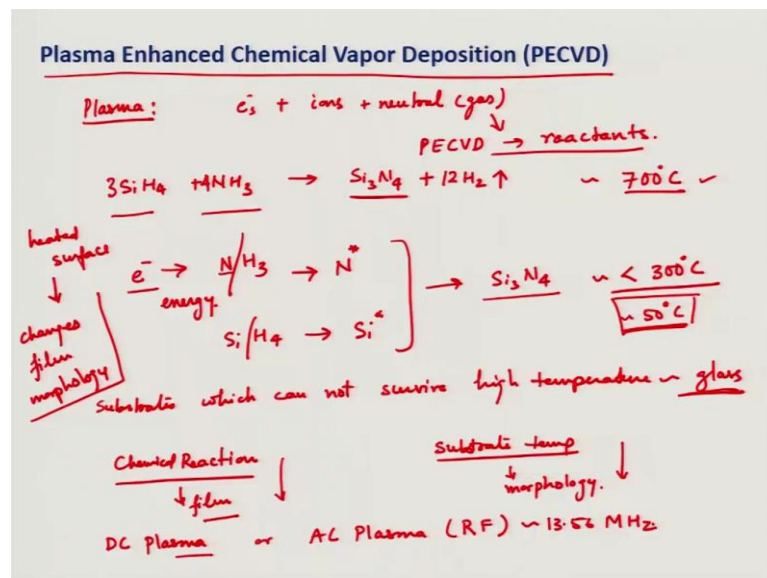 Plasma Enhanced Chemical Vapor Deposition (PECVD)
Plasma : e⁻s + ions + neutral (gas)
PECVD → reactants.
3SiH4 + 4NH3 → Si3N4 + 12H2 ↑ ~ 700°C ✓
heated surface ↓ changes film morphology
e⁻ → N/H3 → N*
energy.
Si/H4 → Si*
→ Si3N4 ~ < 300°C
~ 50°C
Substrate which can not survive high temperature ~ glass
Chemical Reaction ↓ Substrate temp ↓
↓ film ↓ morphology.
DC Plasma or AC Plasma (RF) ~ 13.56 MHz.